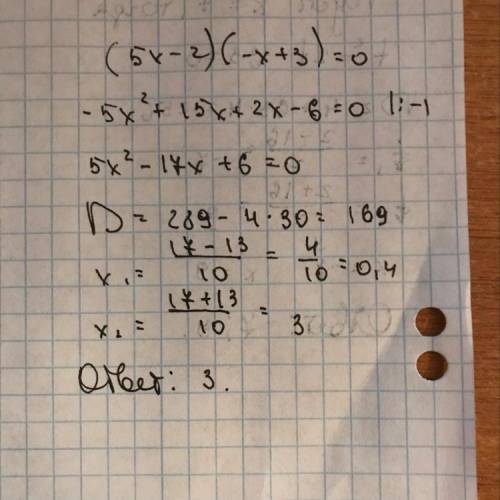 (5x-2)(-x+3)=0
-5x²+15x+2x-6=0 |:-1
5x²-17x+6=0
D=289-4·30=169
x₁=17-13/10=4/10=0,4
x₂=17+13/10=3
Ответ: 3.